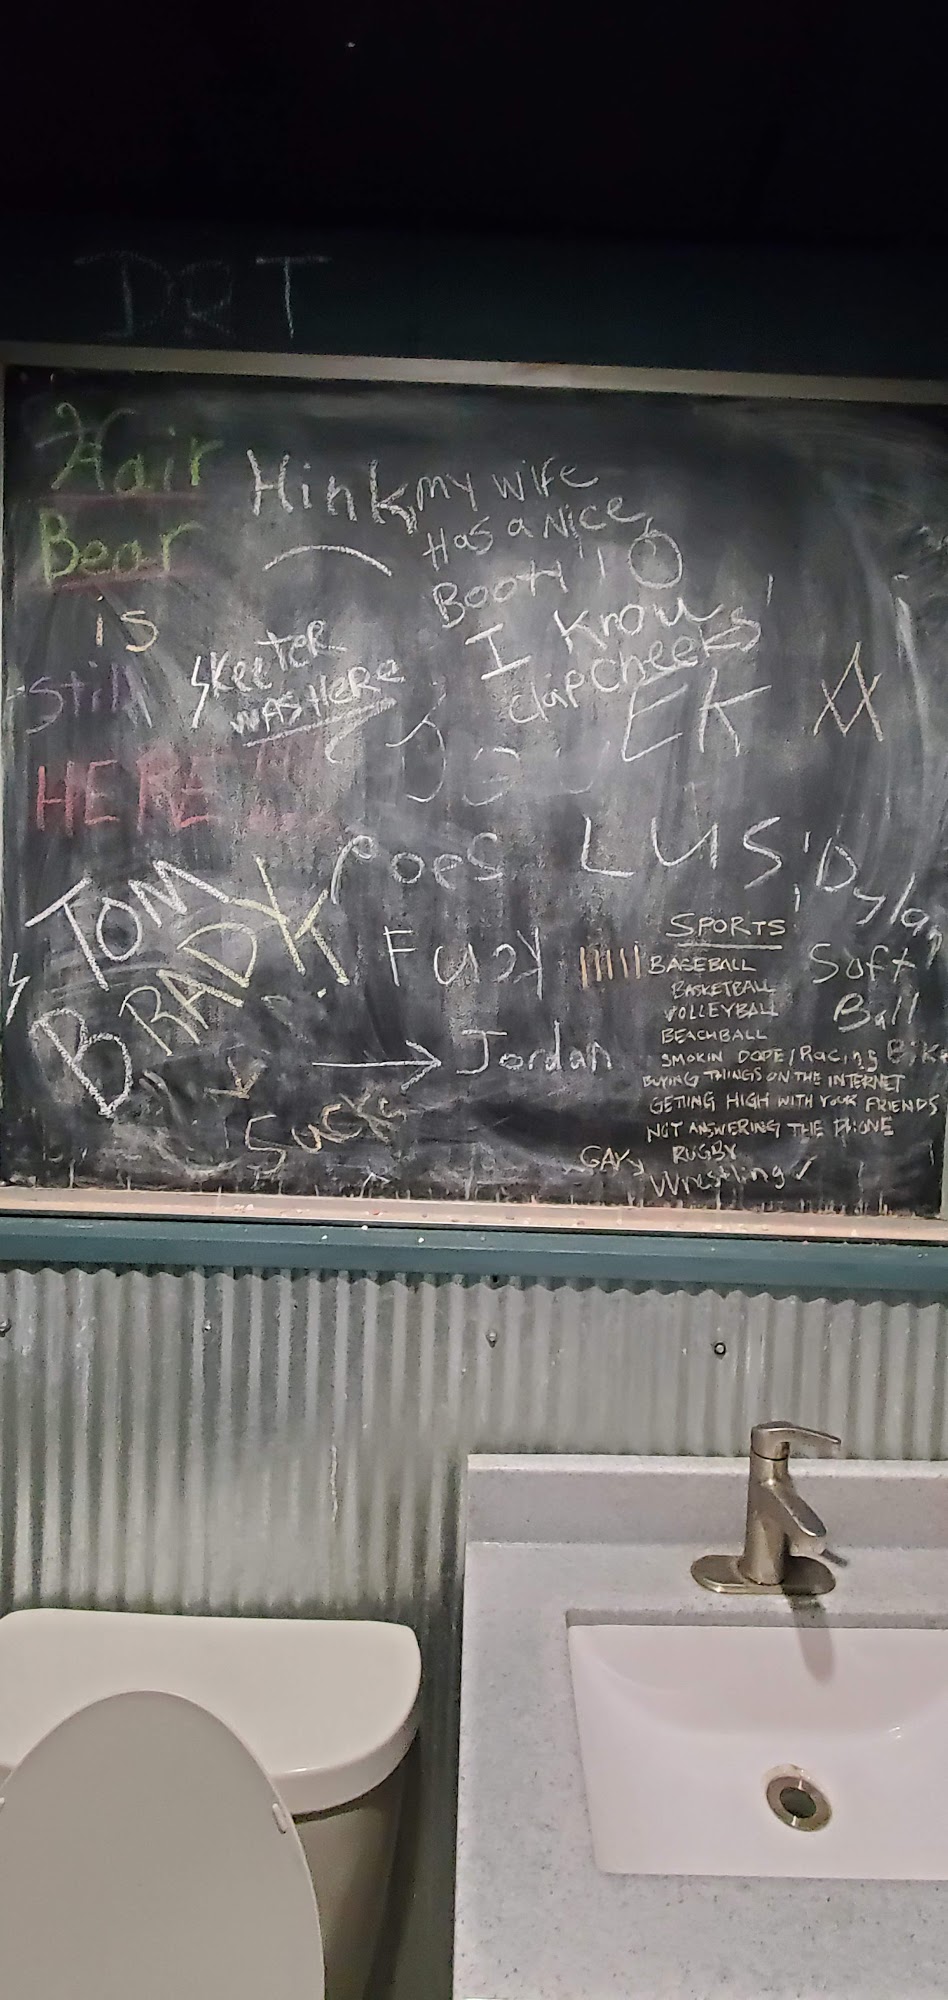 DRT
Hair
Bear
is
Still
HERE
Hink
my wife
Has a Nice
Booty!
I Know
clap cheeks
SKeeTeR
WAS HeRe
EK
Poes LUS
Dylan
TOM
BRADY
Fuck
Jordan
Sucks
SPORTS
BASEBALL
BASKETBALL
VOLLEYBALL
BEACHBALL
SMOKIN DOPE/Racing Bike
BUYING THINGS ON THE INTERNET
GETTING HIGH WITH YOUR FRIENDS
NOT ANSWERING THE PHONE
GAY RUGBY
Wrestling
Soft
Ball